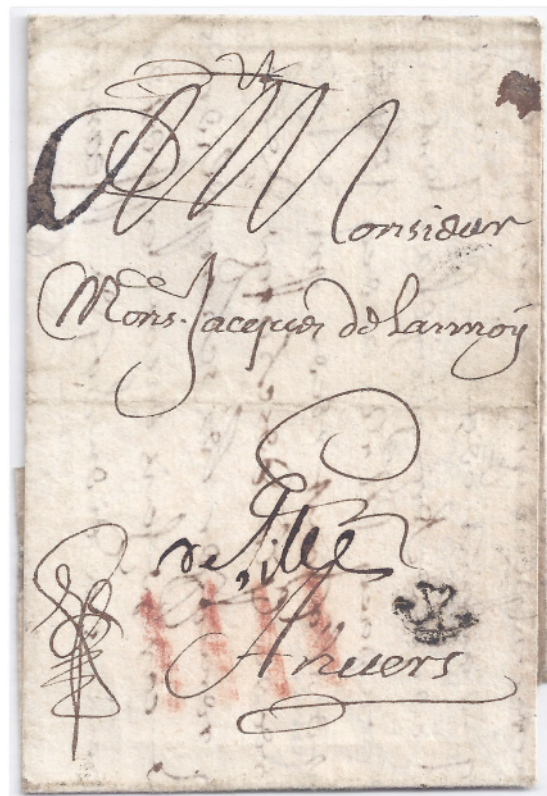 A Monsieur
Mons. Jacques de Larmoÿ
de Lille
Anvers